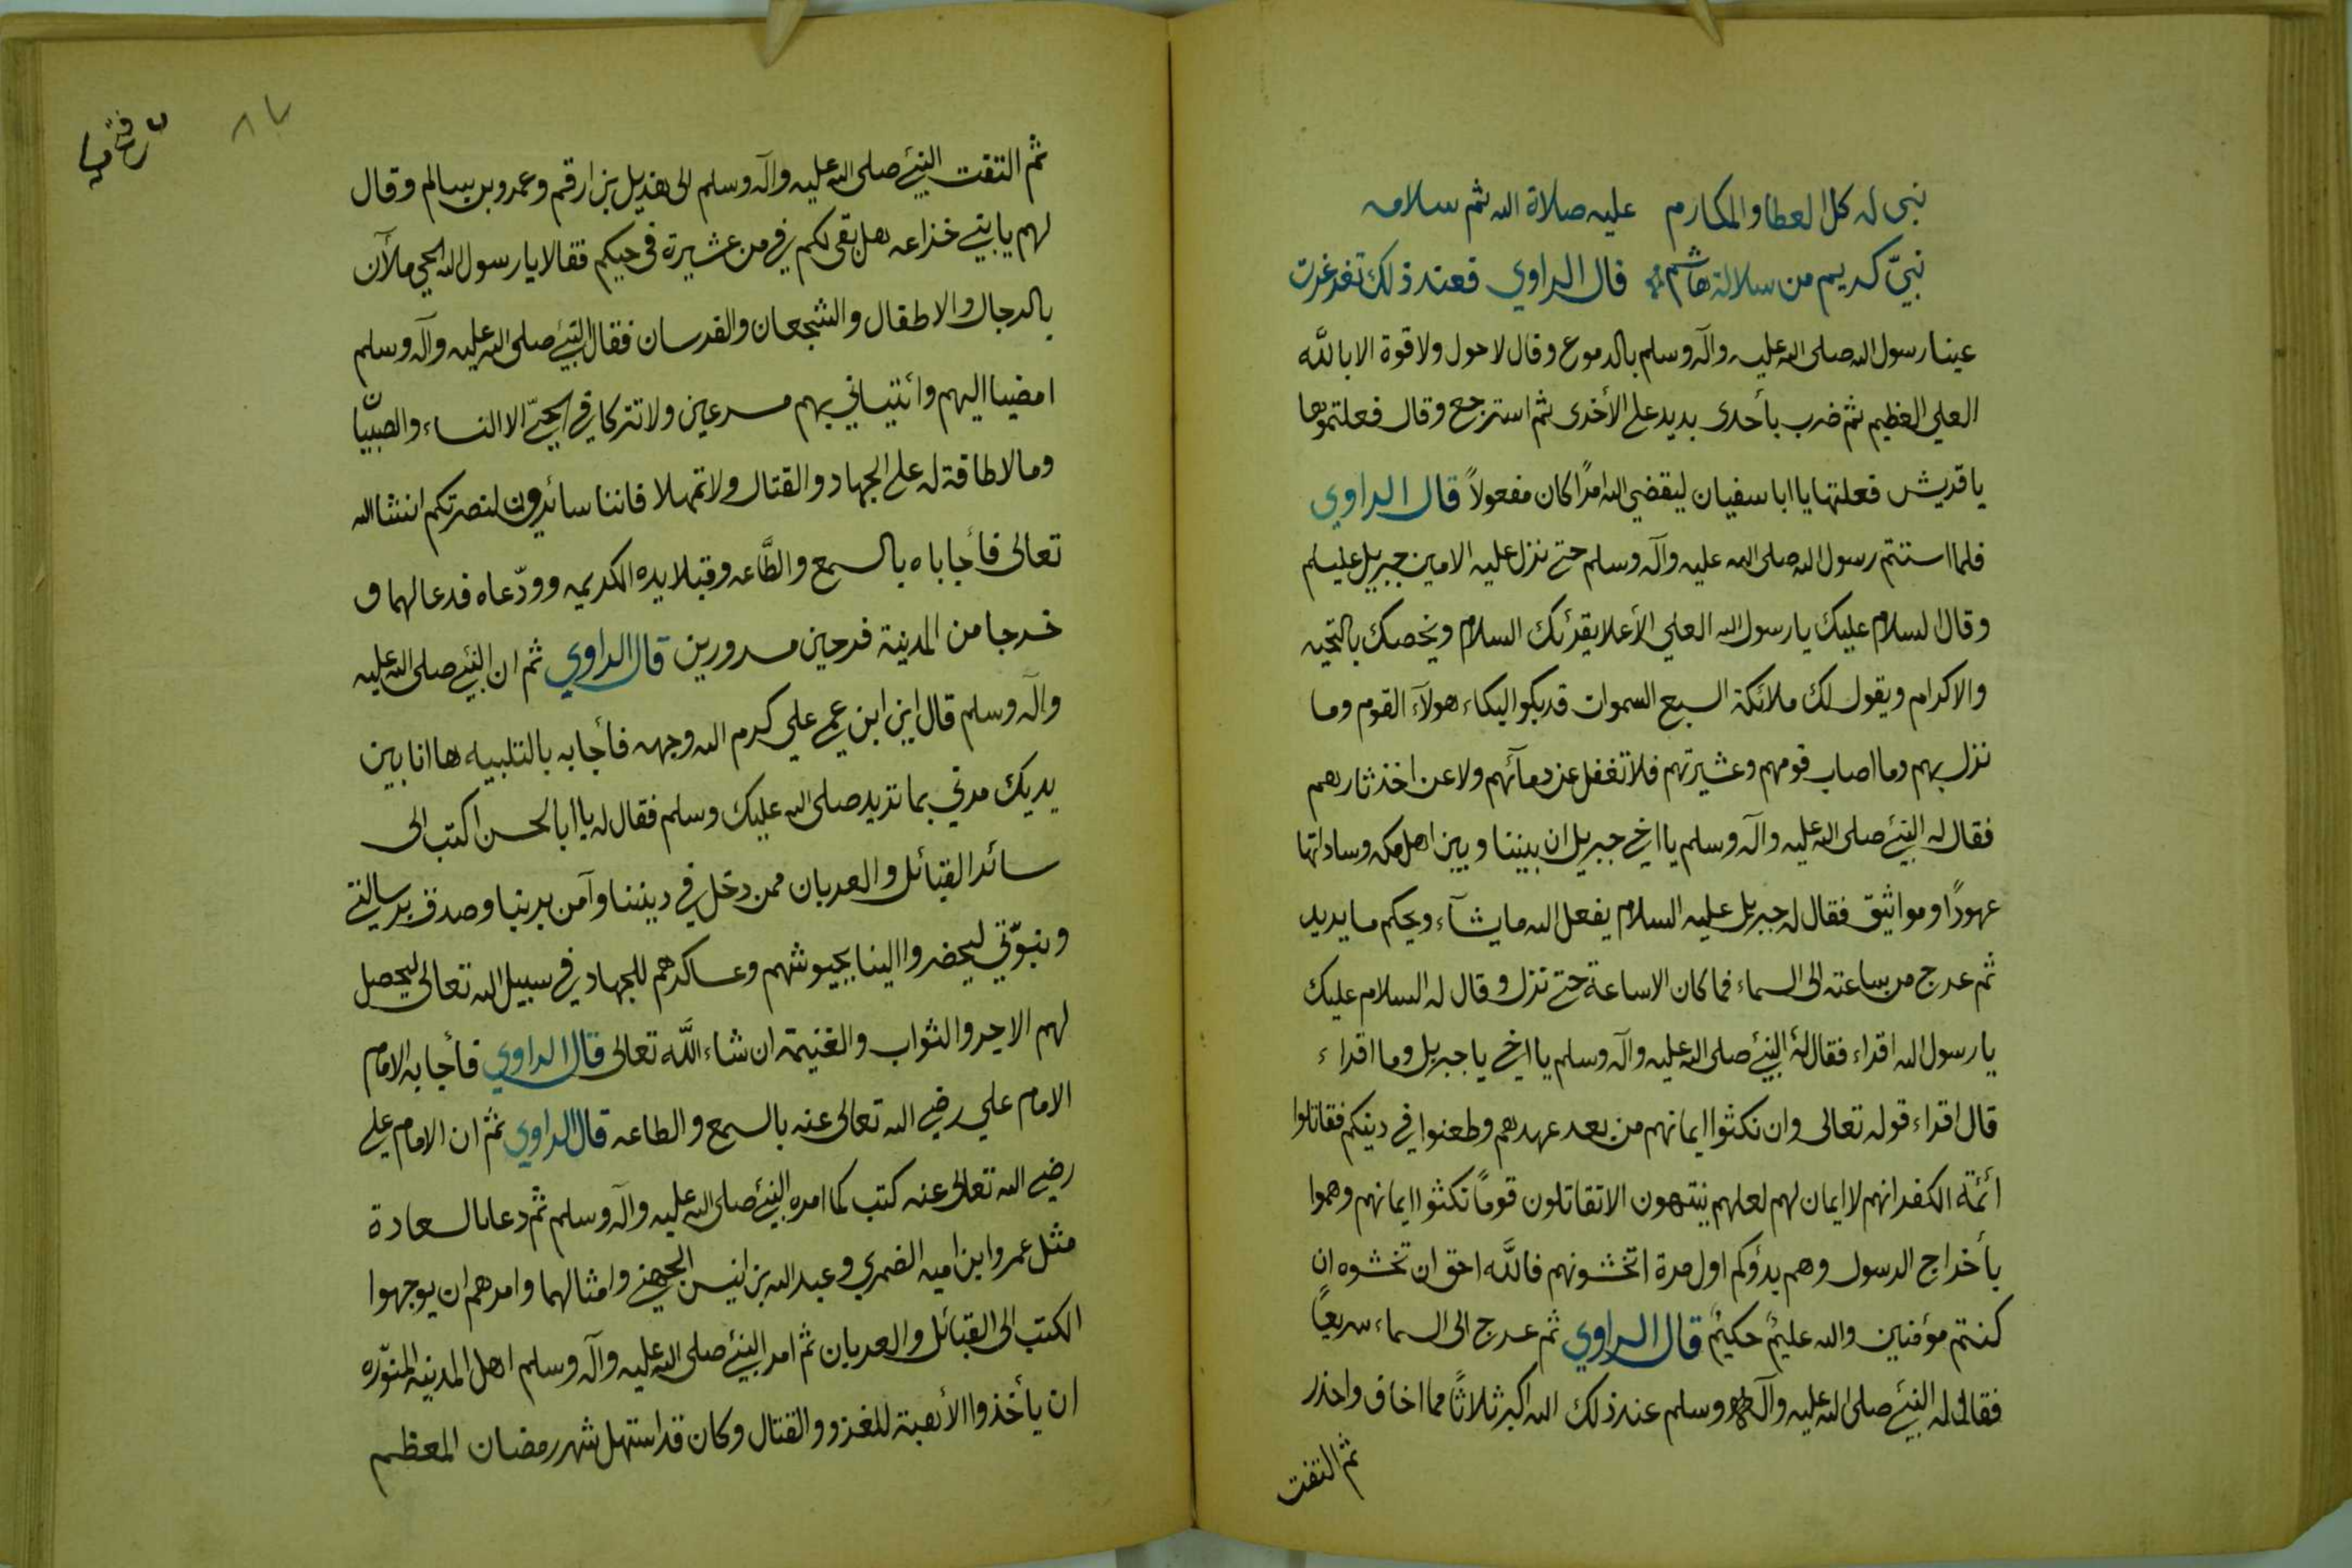 نبي له كل العطا والمكارم عليه صلاة الله ثم سلامه
نبيّ كريم من سلالة هاشم قال الراوي فعند ذلك تغرغرت
عينا رسول الله صلى الله عليه وآله وسلم بالدموع وقال لا حول ولا قوة الا باللّه
العلي العظيم ثم ضرب بأحدى يديه على الأخرى ثم استرجع وقال فعلتموها
يا قريش فعلتها يا ابا سفيان ليقضي الله امرًا كان مفعولاً قال الراوي
فلما استتم رسول الله صلى الله عليه وآله وسلم حتى نزل عليه الامين جبريل
وقال السلام عليك يا رسول الله العلي الأعلا يقرئك السلام ويخصك بالتحيه
والاكرام ويقول لك ملائكة السبع السموات قد بكوا لبكاء هولآء القوم وما
نزل بهم وما اصاب قومهم وعشيرتهم فلا تغفل عن دمآئهم ولا عن اخذ ثارهم
فقال له النبيّ صلى الله عليه وآله وسلم يا اخي جبريل ان بيننا وبين اهل مكه وساداتها
عهودًا ومواثيق فقال له جبريل عليه السلام يفعل الله ما يشآء ويحكم ما يريد
ثم عرج من ساعته الى السماء فما كان الا ساعة حتى نزل وقال له السلام عليك
يا رسول الله اقراء فقال لهُ النبيّ صلى الله عليه وآله وسلم يا اخي يا جبريل وما اقراء
قال اقراء قوله تعالى وان نكثوا ايمانهم من بعد عهدهم وطعنوا في دينكم فقاتلوا
ائمّة الكفر انهم لا ايمان لهم لعلهم ينتهون الا تقاتلون قومًا نكثوا ايمانهم وهموا
بأخراج الرسول وهم بدؤكم اول مرة اتخشونهم فاللّه احق ان تخشوه ان
كنتم مؤمنين والله عليمٌ حكيمٌ قال الراوي ثم عرج الى السماء سريعًا
فقال له النبيّ صلى الله عليه وآله وسلم عند ذلك الله اكبر ثلاثًا مما اخاف واحذر
ثم التفت
٨٢
ثم التفت النبيّ صلى الله عليه وآله وسلم الى هذيل بن ارقم وعمرو بن سالم وقال
لهم يا بني خذاعه هل بقى لكم في من عشيرة في حيكم فقالا يا رسول الله الحي ملآن
بالرجال والاطفال والشجعان والفرسان فقال النبيّ صلى الله عليه وآله وسلم
امضيا اليهم وائتياني بهم مسرعين ولا تتركا في الحيّ الا النساء والصبيّان
وما لا طاقة له على الجهاد والقتال ولا تمهلا فاننا سائرون لنصرتكم انشا الله
تعالى فأجاباه بالسمع والطّاعه وقبلا يده الكريمه وودّعاه فدعا لهما و
خرجا من المدينة فرحين مسرورين قال الراوي ثم ان النبيّ صلى الله عليه
وآله وسلم قال اين ابن عمي علي كرم الله وجهه فأجابه بالتلبيه ها انا بين
يديك مرني بما تريد صلى الله عليك وسلم فقال له يا ابا الحسن اكتب الى
سائر القبائل والعربان ممن دخل في ديننا وآمن بربنا وصدق برسالتي
وبنبوّتي ليحضروا الينا بجيوشهم وعساكرهم للجهاد في سبيل الله تعالى ليحصل
لهم الاجر والثواب والغنيمة ان شاء اللّه تعالى قال الراوي فأجابه الامام
الامام علي رضي الله تعالى عنه بالسمع والطاعه قال الراوي ثم ان الامام علي
رضي الله تعالى عنه كتب كما امره النبيّ صلى الله عليه وآله وسلم ثم دعا بالسعادة
مثل عمر وابن اميه الضمري وعبد الله بن انيس الجهني وامثالهما وامرهم ان يوجهوا
الكتب الى القبائل والعربان ثم امر النبيّ صلى الله عليه وآله وسلم اهل المدينه المنوّره
ان يأخذوا الأهبة للغزو والقتال وكان قد استهل شهر رمضان المعظم